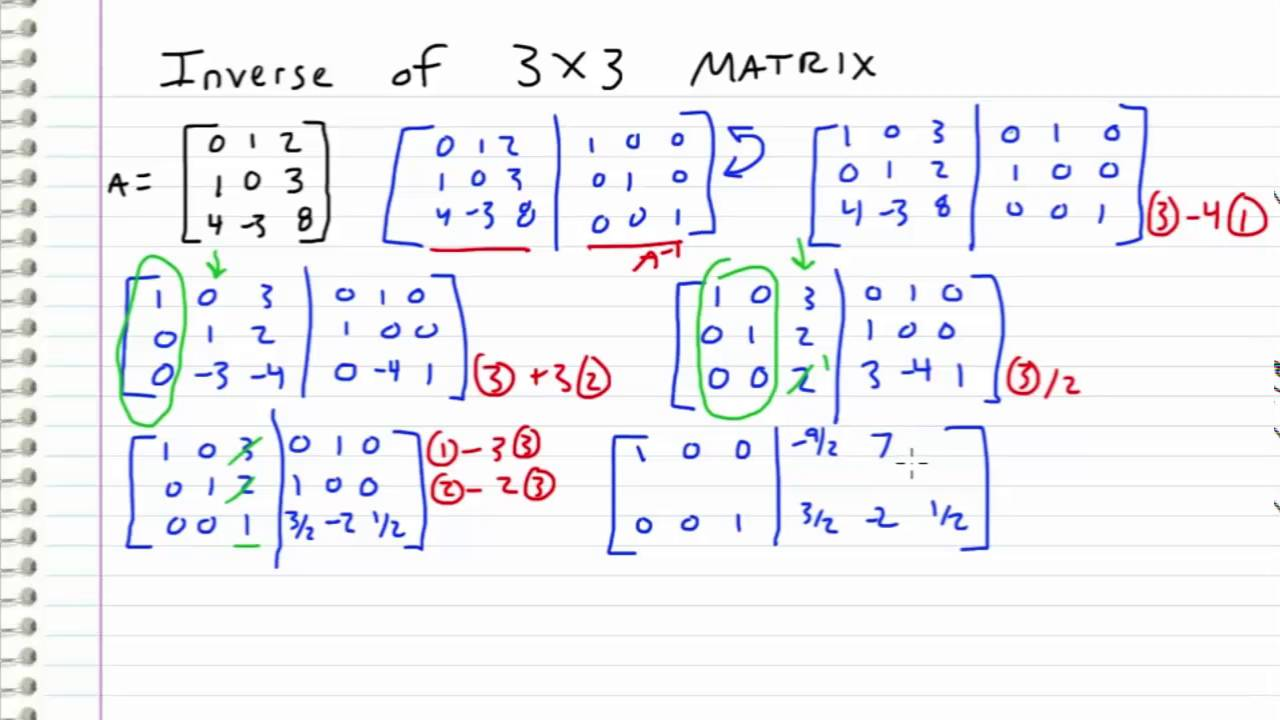 Inverse of 3×3 MATRIX
A = [0 1 2; 1 0 3; 4 -3 8]
[0 1 2 | 1 0 0; 1 0 3 | 0 1 0; 4 -3 8 | 0 0 1] A⁻¹
[1 0 3 | 0 1 0; 0 1 2 | 1 0 0; 4 -3 8 | 0 0 1] ③-4①
[1 0 3 | 0 1 0; 0 1 2 | 1 0 0; 0 -3 -4 | 0 -4 1] ③+3②
[1 0 3 | 0 1 0; 0 1 2 | 1 0 0; 0 0 2 1 | 3 -4 1] ③/2
[1 0 3 | 0 1 0; 0 1 2 | 1 0 0; 0 0 1 | 3/2 -2 1/2] ①-3③ ②-2③
[1 0 0 | -9/2 7; 0 0 1 | 3/2 -2 1/2]